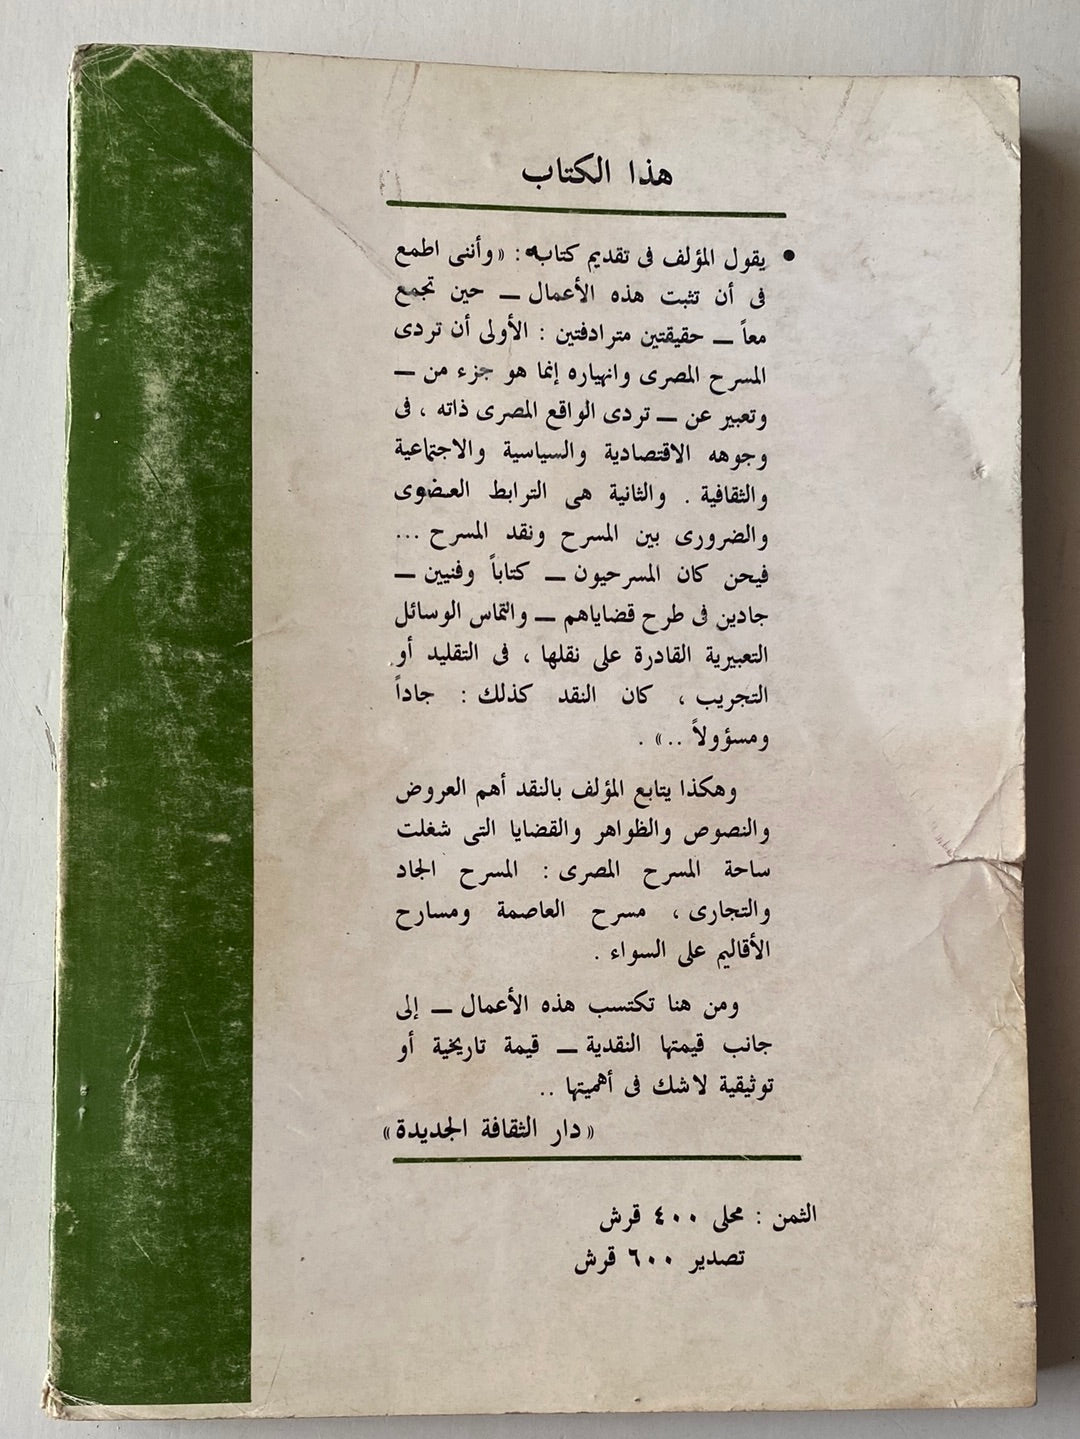 هذا الكتاب
• يقول المؤلف فى تقديم كتابه : « وأننى اطمع
فى أن تثبت هذه الأعمال ــ حين تجمع
معاً ــ حقيقتين مترادفتين : الأولى أن تردى
المسرح المصرى وانهياره إنما هو جزء من ــ
وتعبير عن ــ تردى الواقع المصرى ذاته ، فى
وجوهه الاقتصادية والسياسية والاجتماعية
والثقافية . والثانية هى الترابط العضوى
والضرورى بين المسرح ونقد المسرح ...
فيحن كان المسرحيون ــ كتاباً وفنيين ــ
جادين فى طرح قضاياهم ــ والتماس الوسائل
التعبيرية القادرة على نقلها ، فى التقليد أو
التجريب ، كان النقد كذلك : جاداً
ومسؤولاً .. » .
وهكذا يتابع المؤلف بالنقد أهم العروض
والنصوص والظواهر والقضايا التى شغلت
ساحة المسرح المصرى : المسرح الجاد
والتجارى ، مسرح العاصمة ومسارح
الأقاليم على السواء .
ومن هنا تكتسب هذه الأعمال ــ إلى
جانب قيمتها النقدية ــ قيمة تاريخية أو
توثيقية لاشك فى أهميتها ..
« دار الثقافة الجديدة »
الثمن : محلى ٤٠٠ قرش
تصدير ٦٠٠ قرش